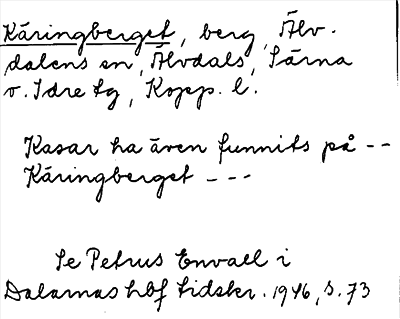 Käringberget, berg, Älv-
dalens sn, Älvdals, Särna
o. Idre tg, Kopp. l.
Kasar ha även funnits på --
Käringberget ---
Se Petrus Envall i
Dalarnas hbf tidskr. 1946, s. 73